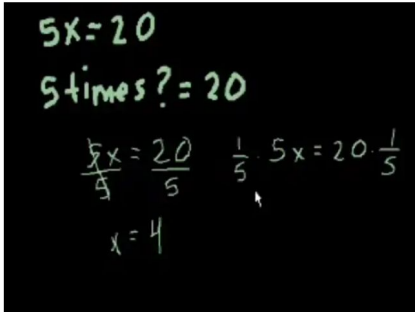 5x=20
5times?=20
5x/5 = 20/5
x=4
1/5 · 5x = 20 · 1/5